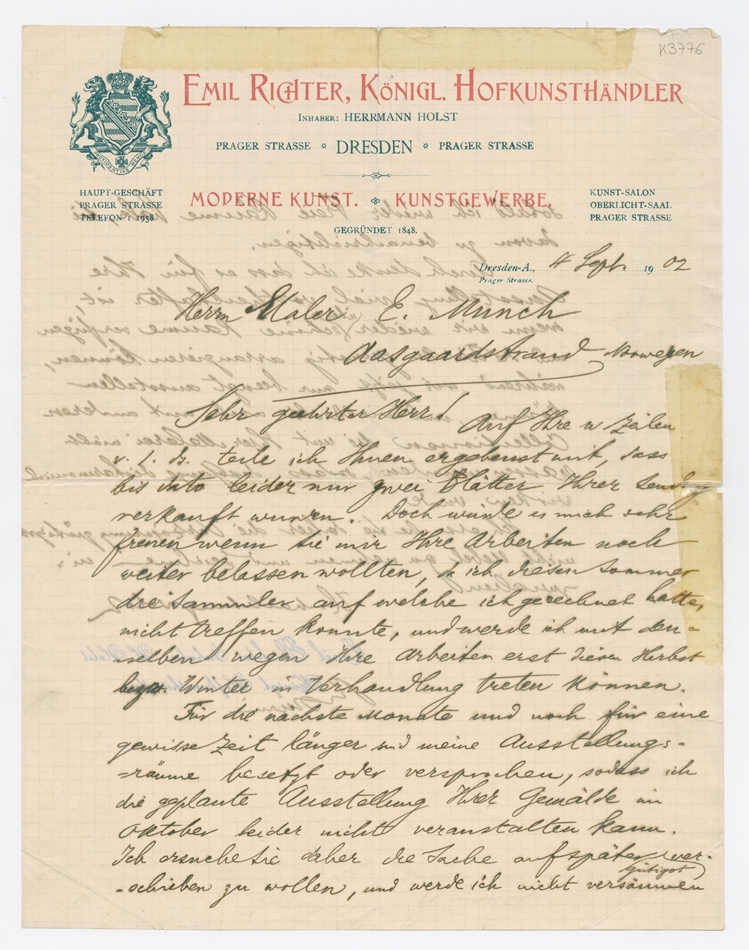 K3776
EMIL RICHTER, KÖNIGL. HOFKUNSTHÄNDLER
INHABER: HERRMANN HOLST
PRAGER STRASSE * DRESDEN * PRAGER STRASSE
HAUPT-GESCHÄFT
PRAGER STRASSE
TELEFON I 1938
MODERNE KUNST. KUNSTGEWERBE.
GEGRÜNDET 1848.
KUNST-SALON
OBERLICHT-SAAL
PRAGER STRASSE
Dresden-A., 4 Sept. 1902
Prager Strasse.
Herrn Maler E. Munch
Aasgaardstrand Norwegen
Sehr geehrter Herr!
Auf Ihre w Zeilen
v. 1. ds. teile ich Ihnen ergebenst mit, dass
bis dato leider nur zwei Blätter Ihrer Sendg
verkauft wurden. Doch würde es mich sehr
freuen wenn Sie mir Ihre Arbeiten noch
weiter belassen wollten, da ich diesen Sommer
die Sammler auf welche ich gerechnet hatte,
nicht treffen konnte, und werde ich mit den=
=selben wegen Ihre Arbeiten erst diesen Herbst
bezw. Winter in Verhandlung treten können.
Für die nächste Monate und noch für eine
gewisse Zeit länger sind meine Ausstellungs=
=räume besetzt oder versprochen, sodass ich
die geplante Ausstellung Ihrer Gemälde im
Oktober leider nicht veranstalten kann.
Ich ersuche Sie daher die Sache auf später ver=
gütigst
=schieben zu wollen, und werde ich nicht versäumen